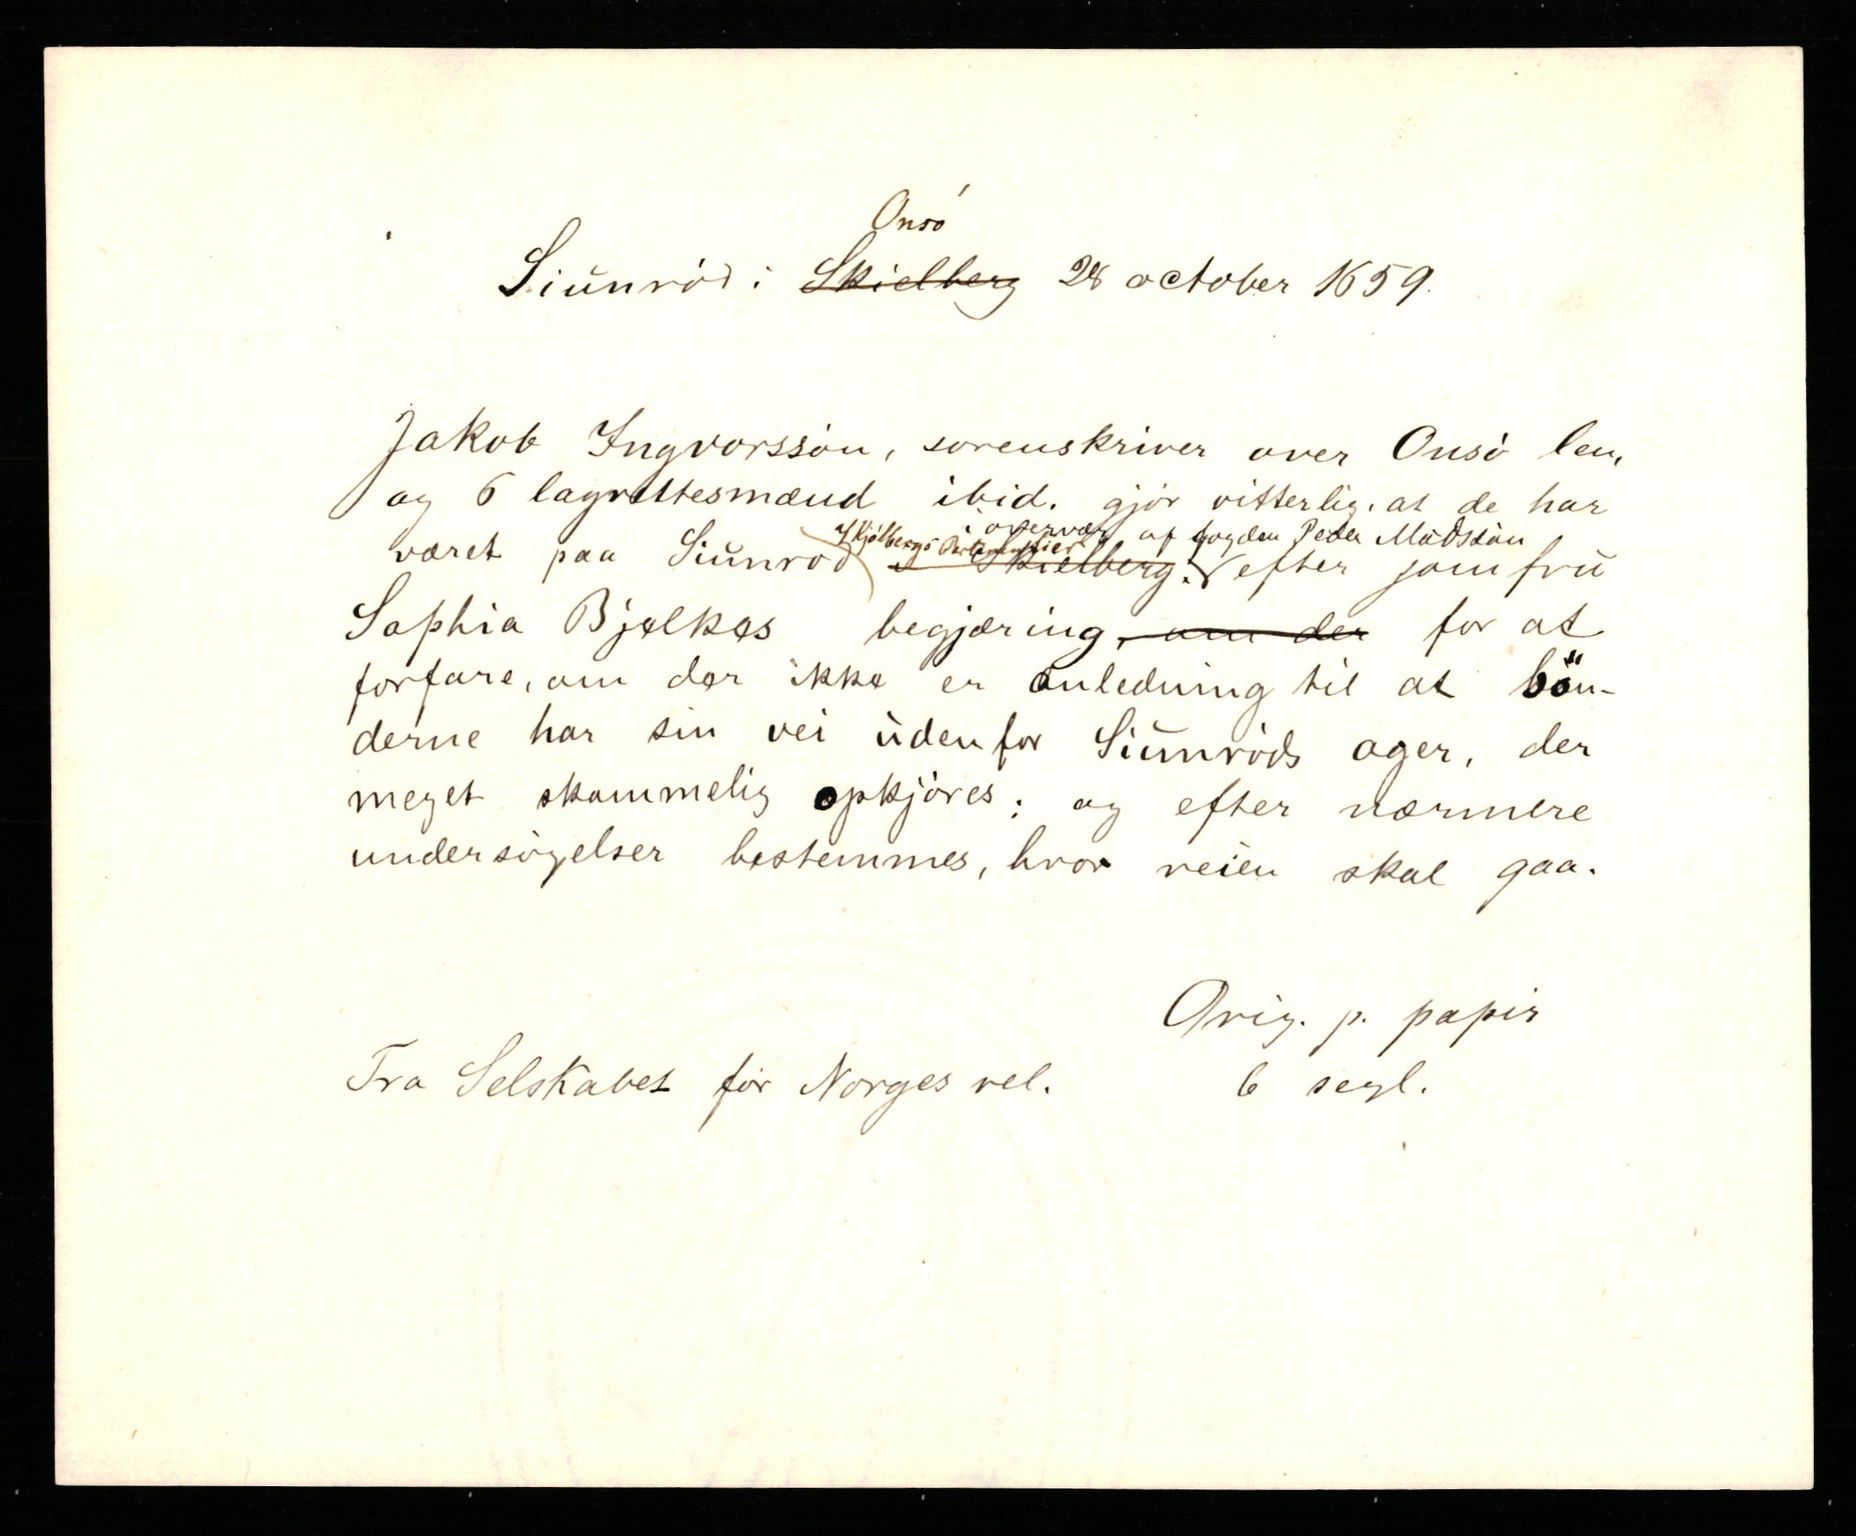 Onsö
Siŭnröd i Skielberg 28 october 1659.
Jakob Ingvorssön, sorenskriver over Onsö len,
og 6 lagrettesmænd ibid. gjör vitterlig, at de har
i overvær af fogden Peder Madssön
været paa Siŭnröd Skielberg. efter jomfrŭ
Sophia Bjelkes begjæring, om der for at
forfare, om der ikke er anledning til at bön-
derne har sin vei ŭdenfor Siŭnröds ager, der
meget skammelig opkjöres; og efter nærmere
undersögelser bestemmes, hvor veien skal gaa.
Orig. p. papir
Fra Selskabet for Norges vel. 6 segl.